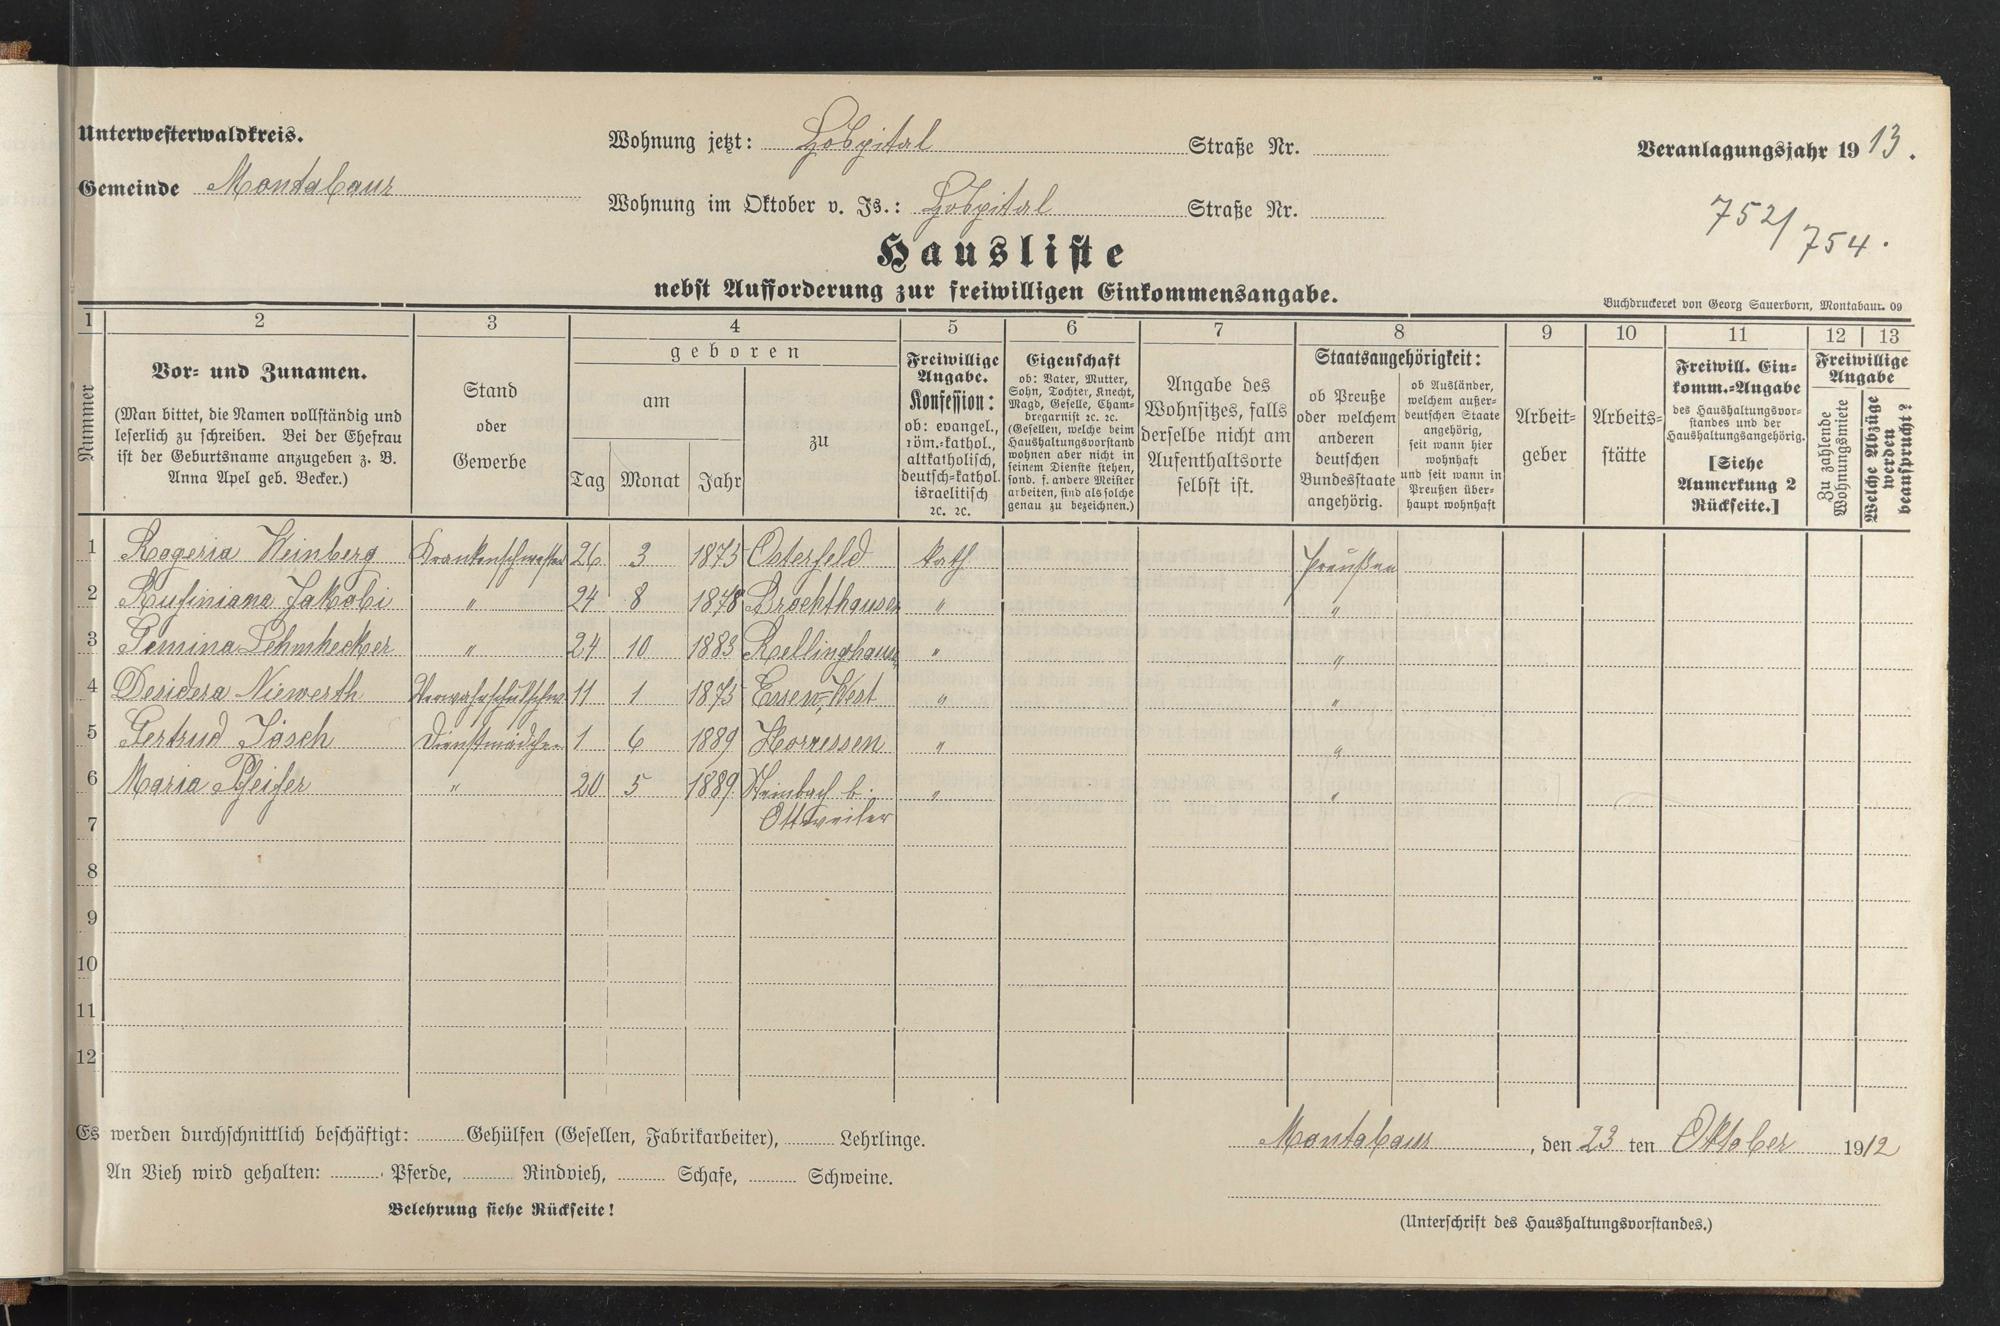 Unterwesterwaldkreis.
Gemeinde Montabaur
Wohnung jetzt: Hospital Straße Nr.
Wohnung im Oktober v. Js.: Hospital Straße Nr.
Veranlagungsjahr 1913.
752/754.
Hausliste
nebst Aufforderung zur freiwilligen Einkommensangabe.
Buchdruckerei von Georg Sauerborn, Montabaur. 09
1 2 3 4 5 6 7 8 9 10 11 12 13
Nummer
Vor- und Zunamen.
(Man bittet, die Namen vollständig und
leserlich zu schreiben. Bei der Ehefrau
ist der Geburtsname anzugeben z. B.
Anna Apel geb. Becker.)
Stand
oder
Gewerbe
geboren
am
Tag Monat Jahr
zu
Freiwillige
Angabe.
Konfession:
ob: evangel.,
röm.-kathol.,
altkatholisch,
deutsch-kathol.
israelitisch
ꝛc. ꝛc.
Eigenschaft
ob: Vater, Mutter,
Sohn, Tochter, Knecht,
Magd, Geselle, Cham-
bregarnist ꝛc. ꝛc.
(Gesellen, welche beim
Haushaltungsvorstand
wohnen aber nicht in
seinem Dienste stehen,
sond. f. andere Meister
arbeiten, sind als solche
genau zu bezeichnen.)
Angabe des
Wohnsitzes, falls
derselbe nicht am
Aufenthaltsorte
selbst ist.
Staatsangehörigkeit:
ob Preuße
oder welchem
anderen
deutschen
Bundesstaate
angehörig.
ob Ausländer,
welchem außer-
deutschen Staate
angehörig,
seit wann hier
wohnhaft
und seit wann in
Preußen über-
haupt wohnhaft
Arbeit-
geber
Arbeits-
stätte
Freiwill. Ein-
komm.-Angabe
des Haushaltungsvor-
standes und der
Haushaltungsangehörig.
[Siehe
Anmerkung 2
Rückseite.]
Freiwillige
Angabe
Zu zahlende
Wohnungsmiete
Welche Abzüge
werden
beansprucht?
1 Rogeria Weinberg Krankenschwester 26 3 1875 Osterfeld kath. Preußen
2 Rufiniana Jakobi " 24 8 1878 Brockthausen " "
3 Lehmhecker " 24 10 1883 Rellinghausen " "
4 Desidera Niewerth 11 1 1875 Essen-West " "
5 Gertrud Jösch Dienstmädchen 1 6 1889 Horressen " "
6 Maria Pfeifer " 20 5 1889 Steinbach b. " "
7 Ottweiler
8
9
10
11
12
Es werden durchschnittlich beschäftigt: Gehülfen (Gesellen, Fabrikarbeiter), Lehrlinge.
An Vieh wird gehalten: Pferde, Rindvieh, Schafe, Schweine.
Belehrung siehe Rückseite!
Montabaur, den 23 ten Oktober 1912
(Unterschrift des Haushaltungsvorstandes.)